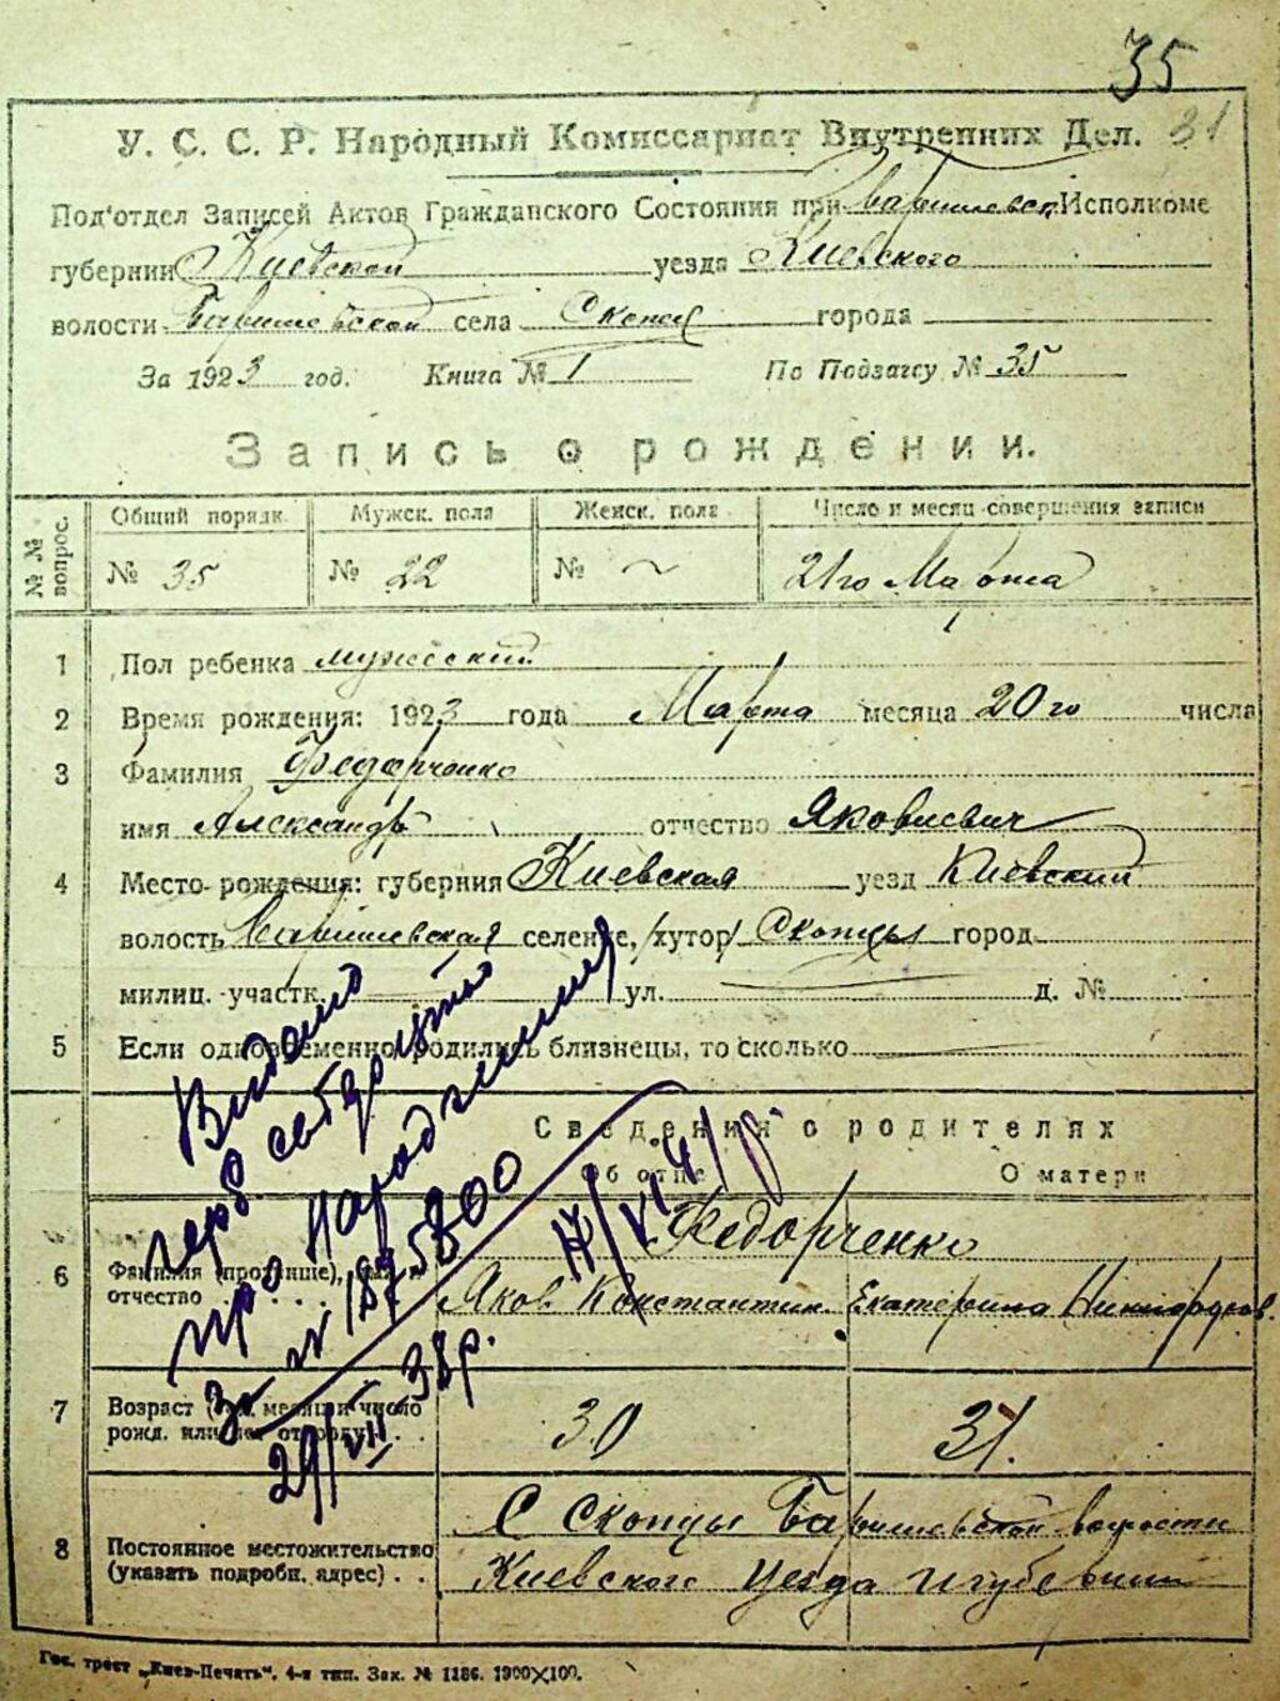 35
31
У. С. С. Р. Народный Комиссариат Внутренних Дел.
Под'отдел Записей Актов Гражданского Состояния при Барышевск. Исполкоме
губернии Киевской уезда Киевского
волости Баришевской села Скопцы города
За 1923 год. Книга № 1 По Подзагсу № 35
Запись о рождении.
№№ вопрос.
Общий порядк. Мужск. пола Женск. пола Число и месяц совершения записи
№ 35 № 22 № ~ 21го Марта
1 Пол ребенка мужеский
2 Время рождения: 1923 года Марта месяца 20го числа
3 Фамилия Федорченко
имя Александр отчество Яковлевич
4 Место рождения: губерния Киевская уезд Киевский
волость Баришевская селение, /хутор/ Скопцы город
милиц. участк. ул. д. №
5 Если одновременно родились близнецы, то сколько
Сведения о родителях
Об отце О матери
Федорченко
6 Фамилия (прозвище), имя и
отчество Яков Константин. Екатерина
7 Возраст (год, месяц и число
рожд. или лет от роду) 30 31.
С Скопцы Баришевской волости
8 Постоянное местожительство
(указать подробн. адрес) Киевского уезда и губернии
Видано
герб. свідоцтво
про народження
за № 1875800
29/VII 38р.
17/VI 41 р.
Гос. трест „Киев-Печать“. 4-я тип. Зак. № 1186. 1900×100.